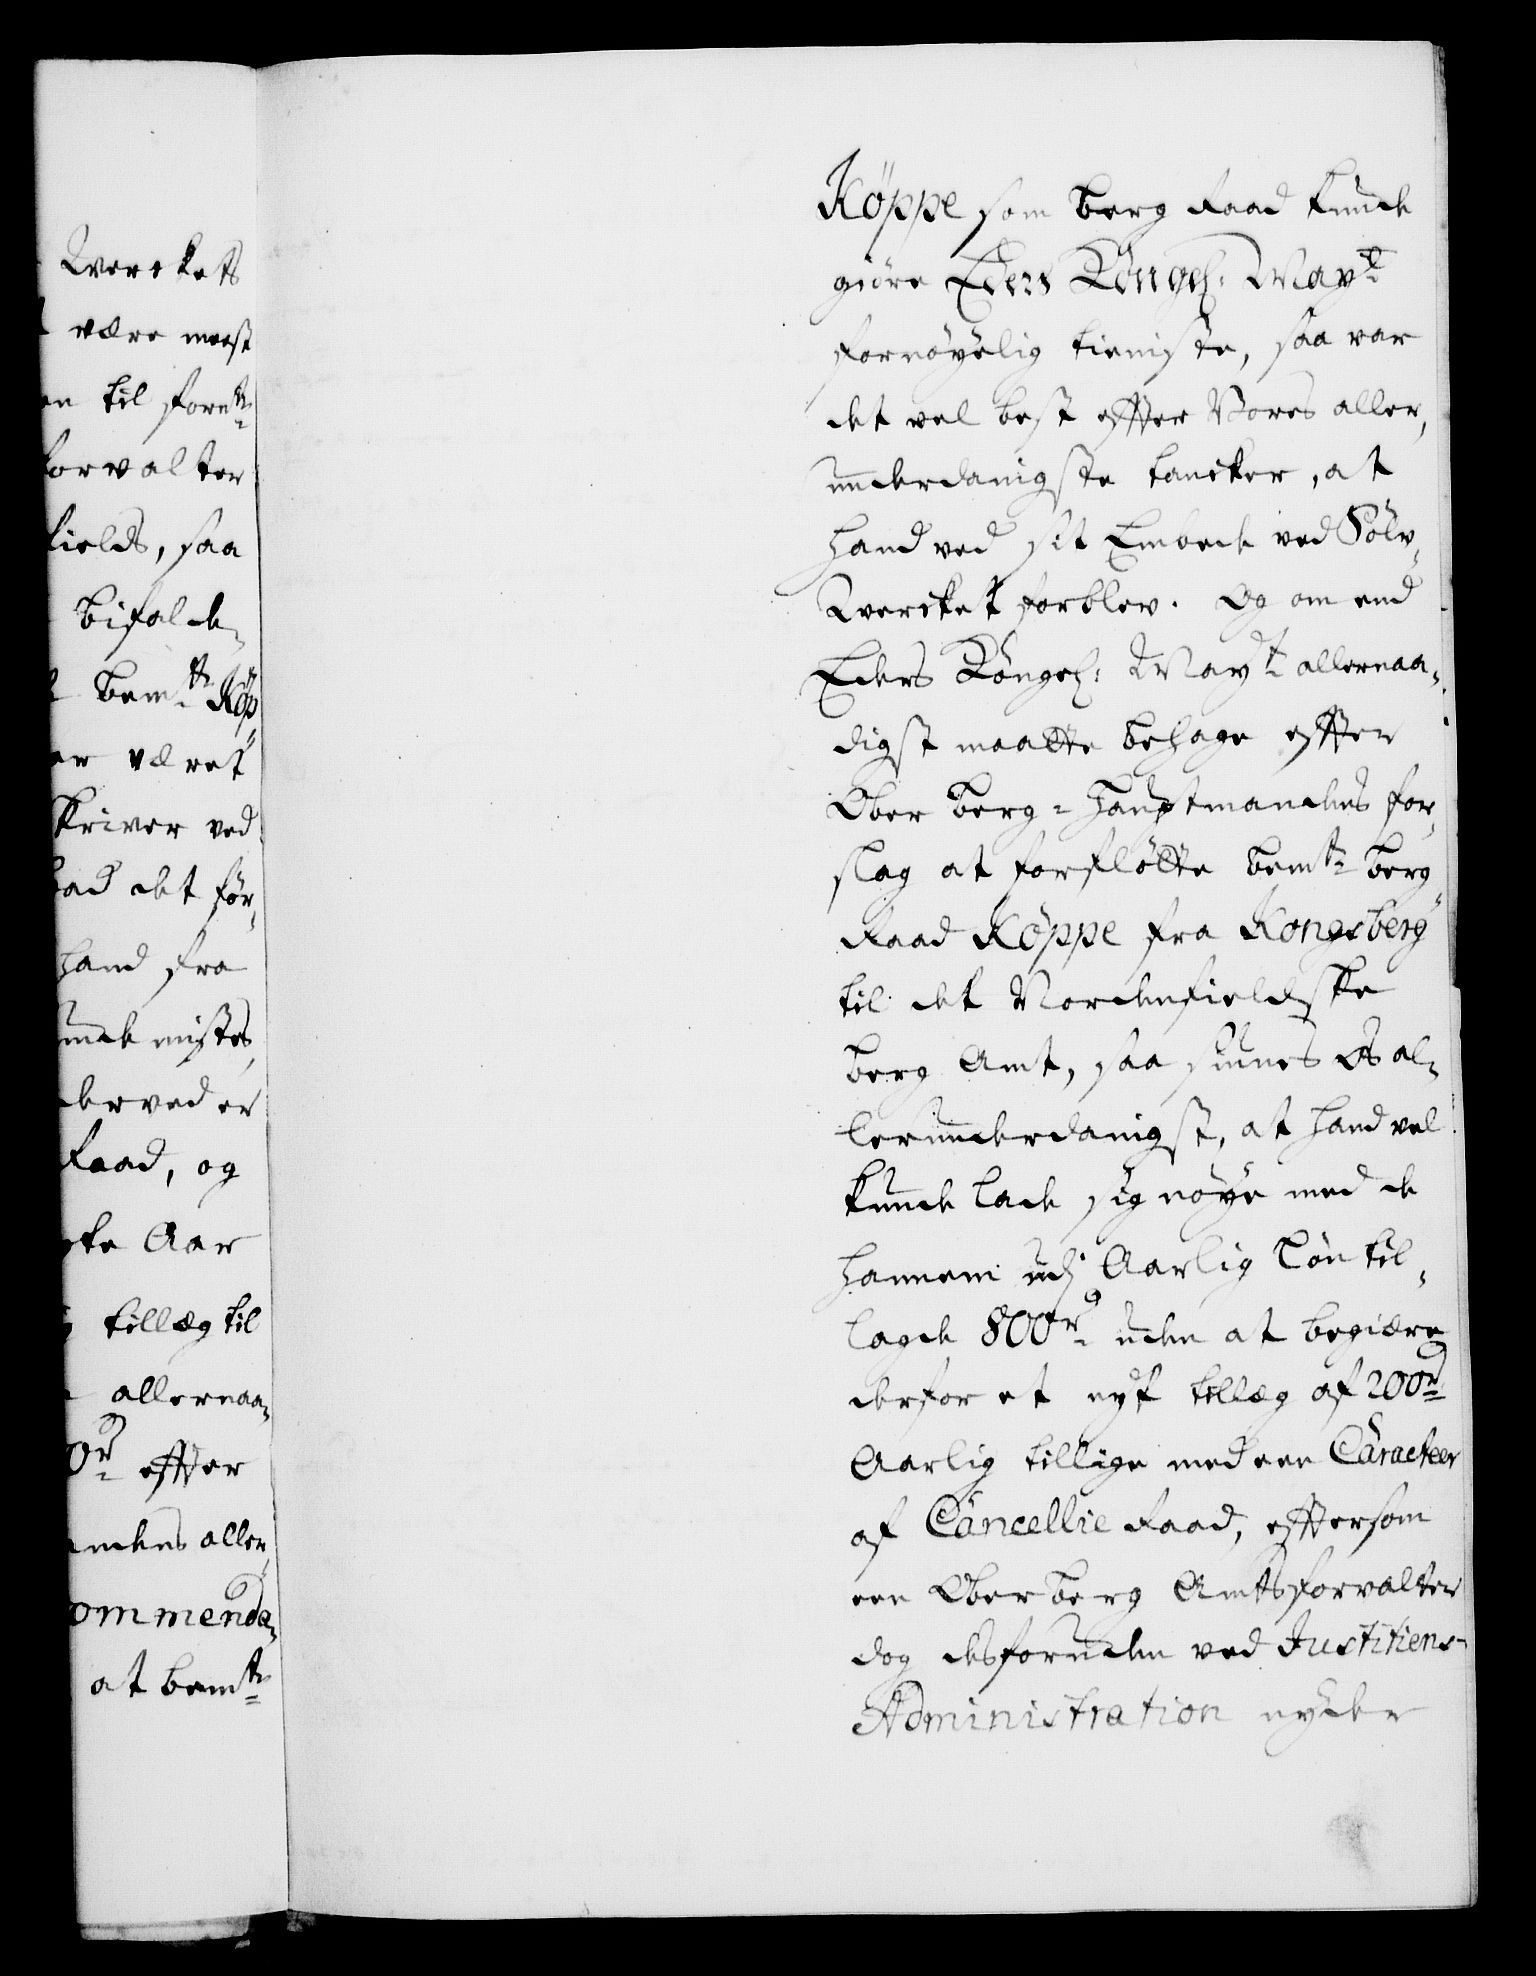 Wercket s
være meest
en til forn:te
forvalter
fields, saa
bifalde,
bem:te Köp
er været
skriver ved
bad det för,
hand fra
unde mistes,
derved er
Raad, og
te Aar
tillæg til
allernaa,
0 rd: effter
andens aller,
ommenda,
at bem:te
Köppe som berg Raad kunde
giöre Eders Köngel: May:t
fornöyelig tieniste, saa var
det vel best effter Vores aller,
underdanigste tancker, at
hand ved sit Embede ved Sölv,
Wercket forblev. Og om end
Eders Köngel: May:t allernaa,
digst maatte behage effter
Ober berg-Hauptmandens for,
slag at forflötte bem:te berg
Raad Köppe fra Kongsberg
til det Nordenfieldske
berg Amt, saa siunes Os al,
lerunderdanigst, at hand vel
kunde lade sig nöye med de
hannem udj Aarlig Lön til,
lagde 800 rd: uden at begiære
derfor et nyt tillæg af 200 rd:
Aarlig tillige med een Caracteer
af Cancellie Raad, efftersom
een Ober berg Amtsforvalter
dog desforuden ved Justitiens-
Administration nyder